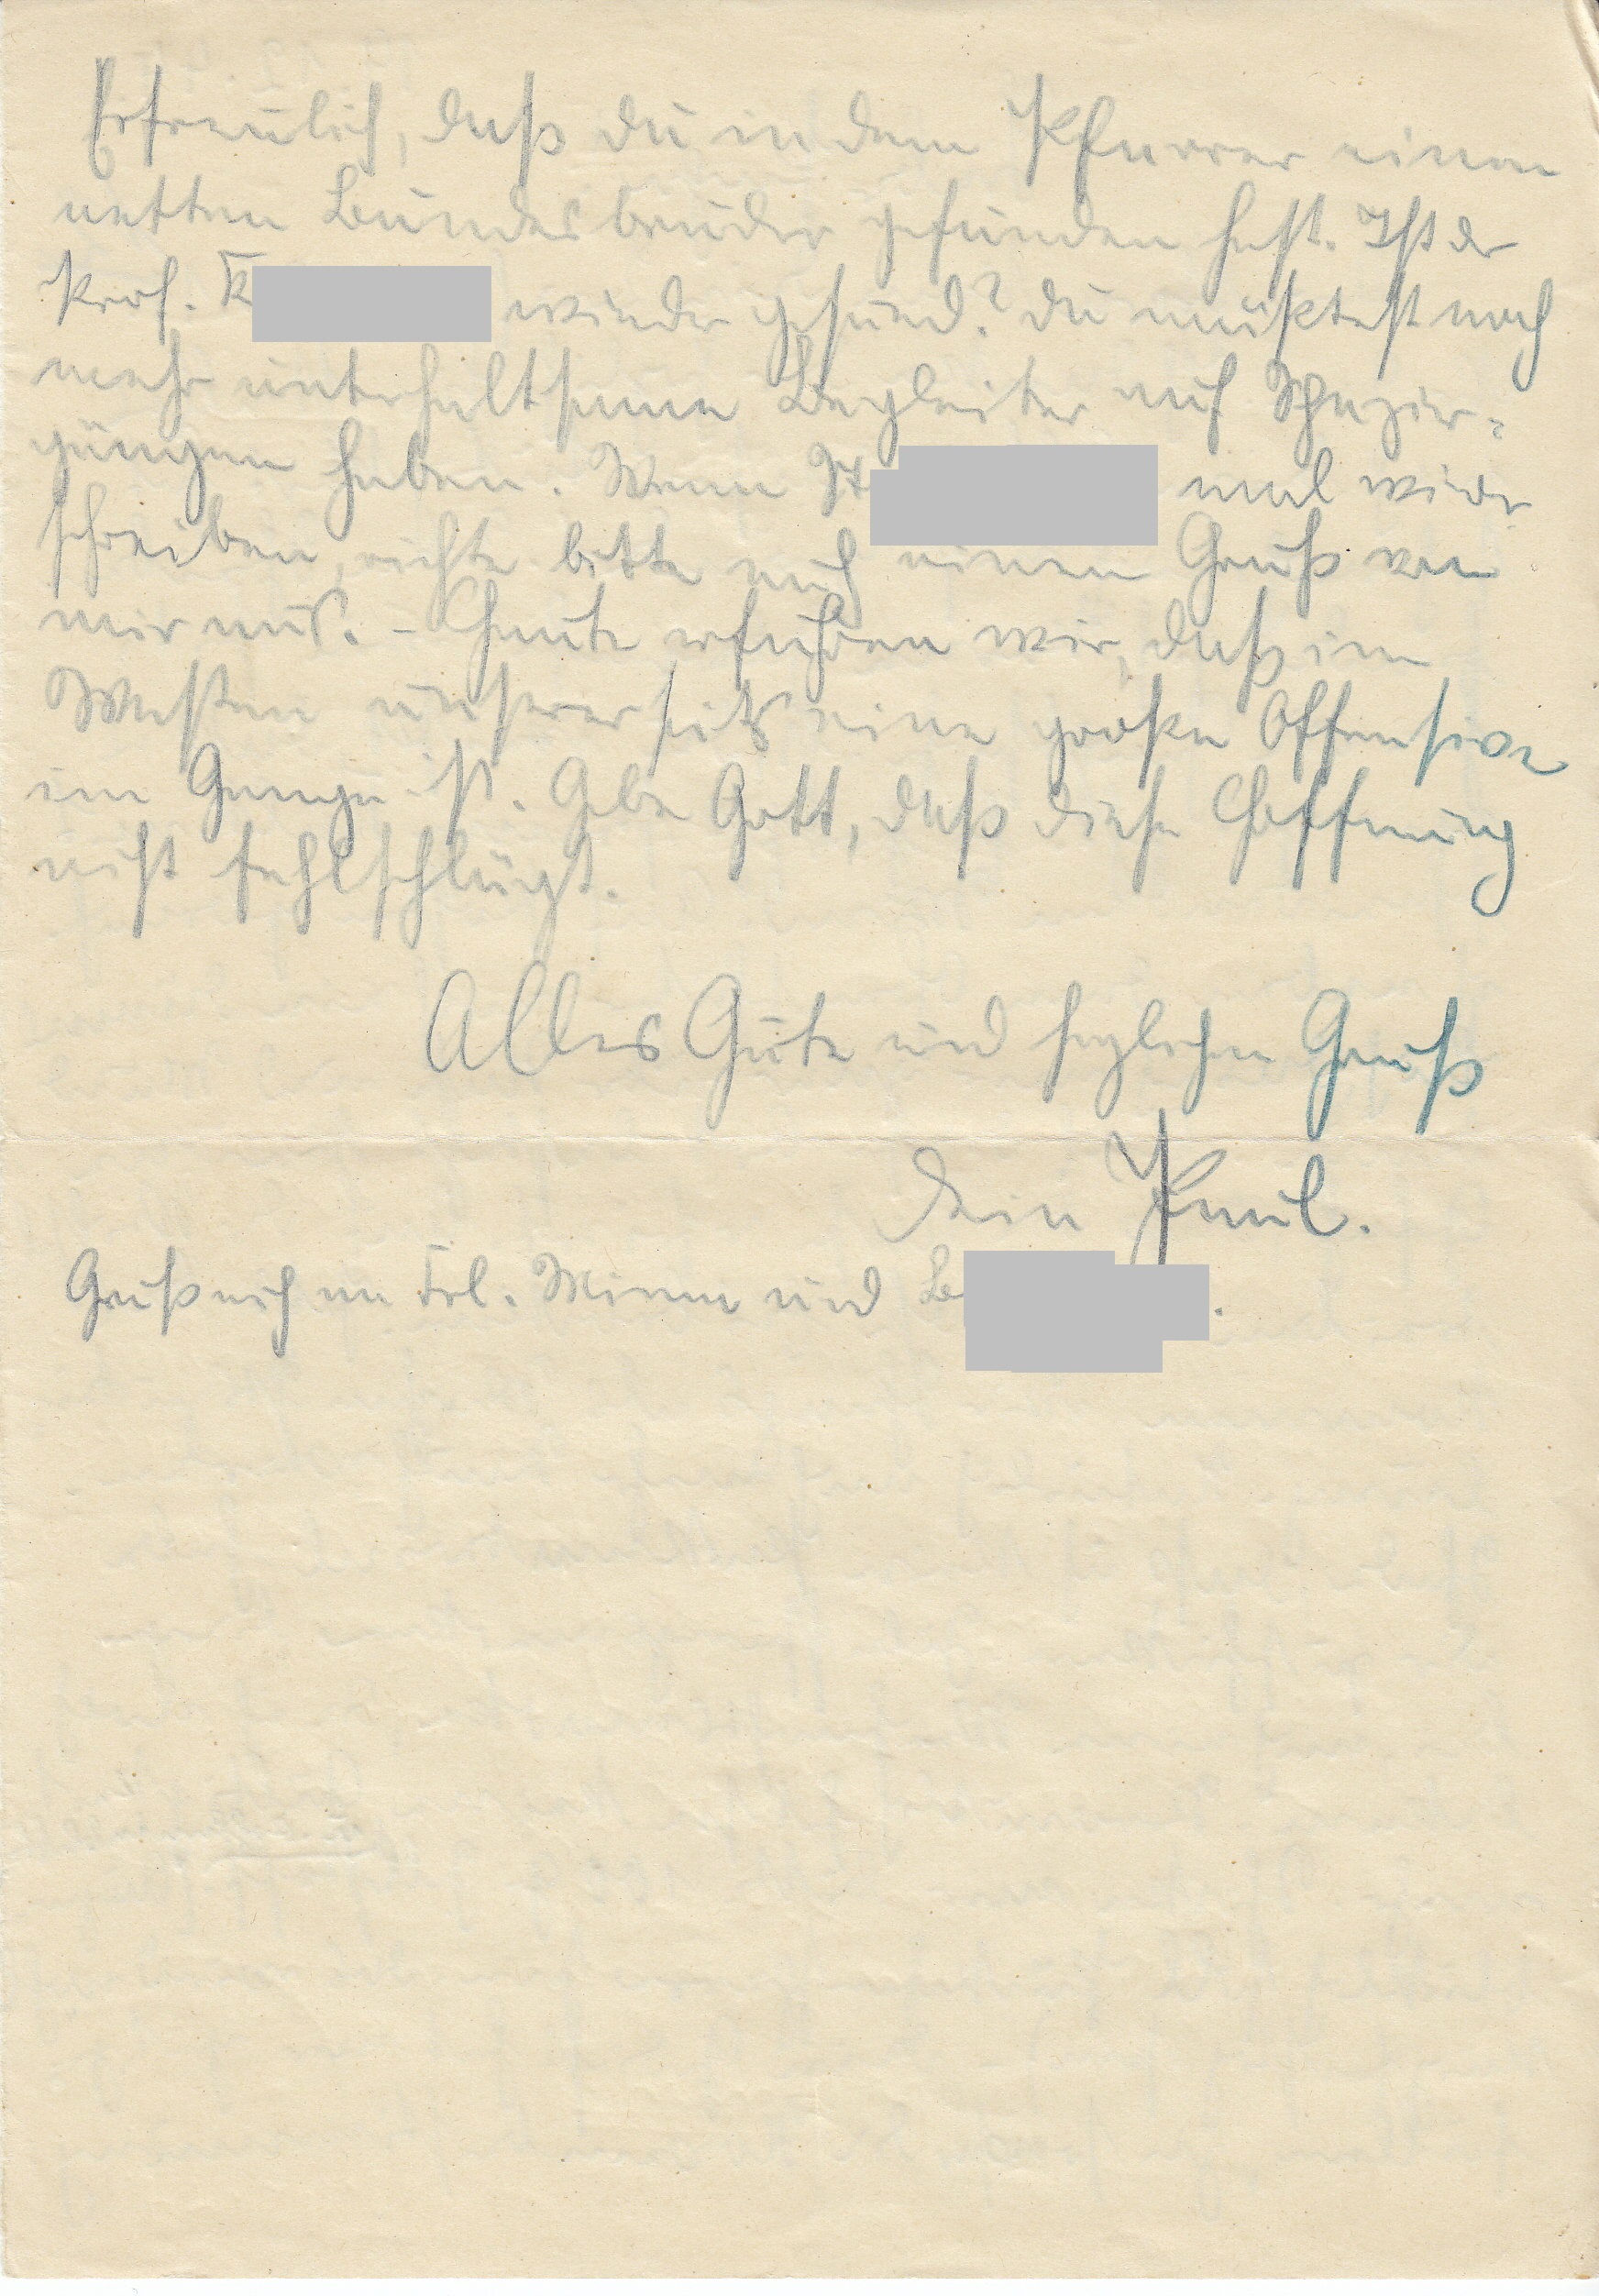 Erfreulich, daß du in dem Pfarrer einen
netten Bundesbruder gefunden hast. Ist der
Prof. K wieder gesund? Du müßtest noch
mehr unterhaltsame Begleiter auf Spazier-
gängen haben. Wenn St mal wieder
schreiben, richte bitte auch einen Gruß von
mir aus. – Heute erfuhren wir, daß im
Westen unsererseits eine große Offensive
im Gange ist. Gebe Gott, daß diese Hoffnung
nicht fehlschlägt.
Alles Gute und herzlichen Gruß
Dein Paul.
Gruß auch an Frl. Minna und Be .